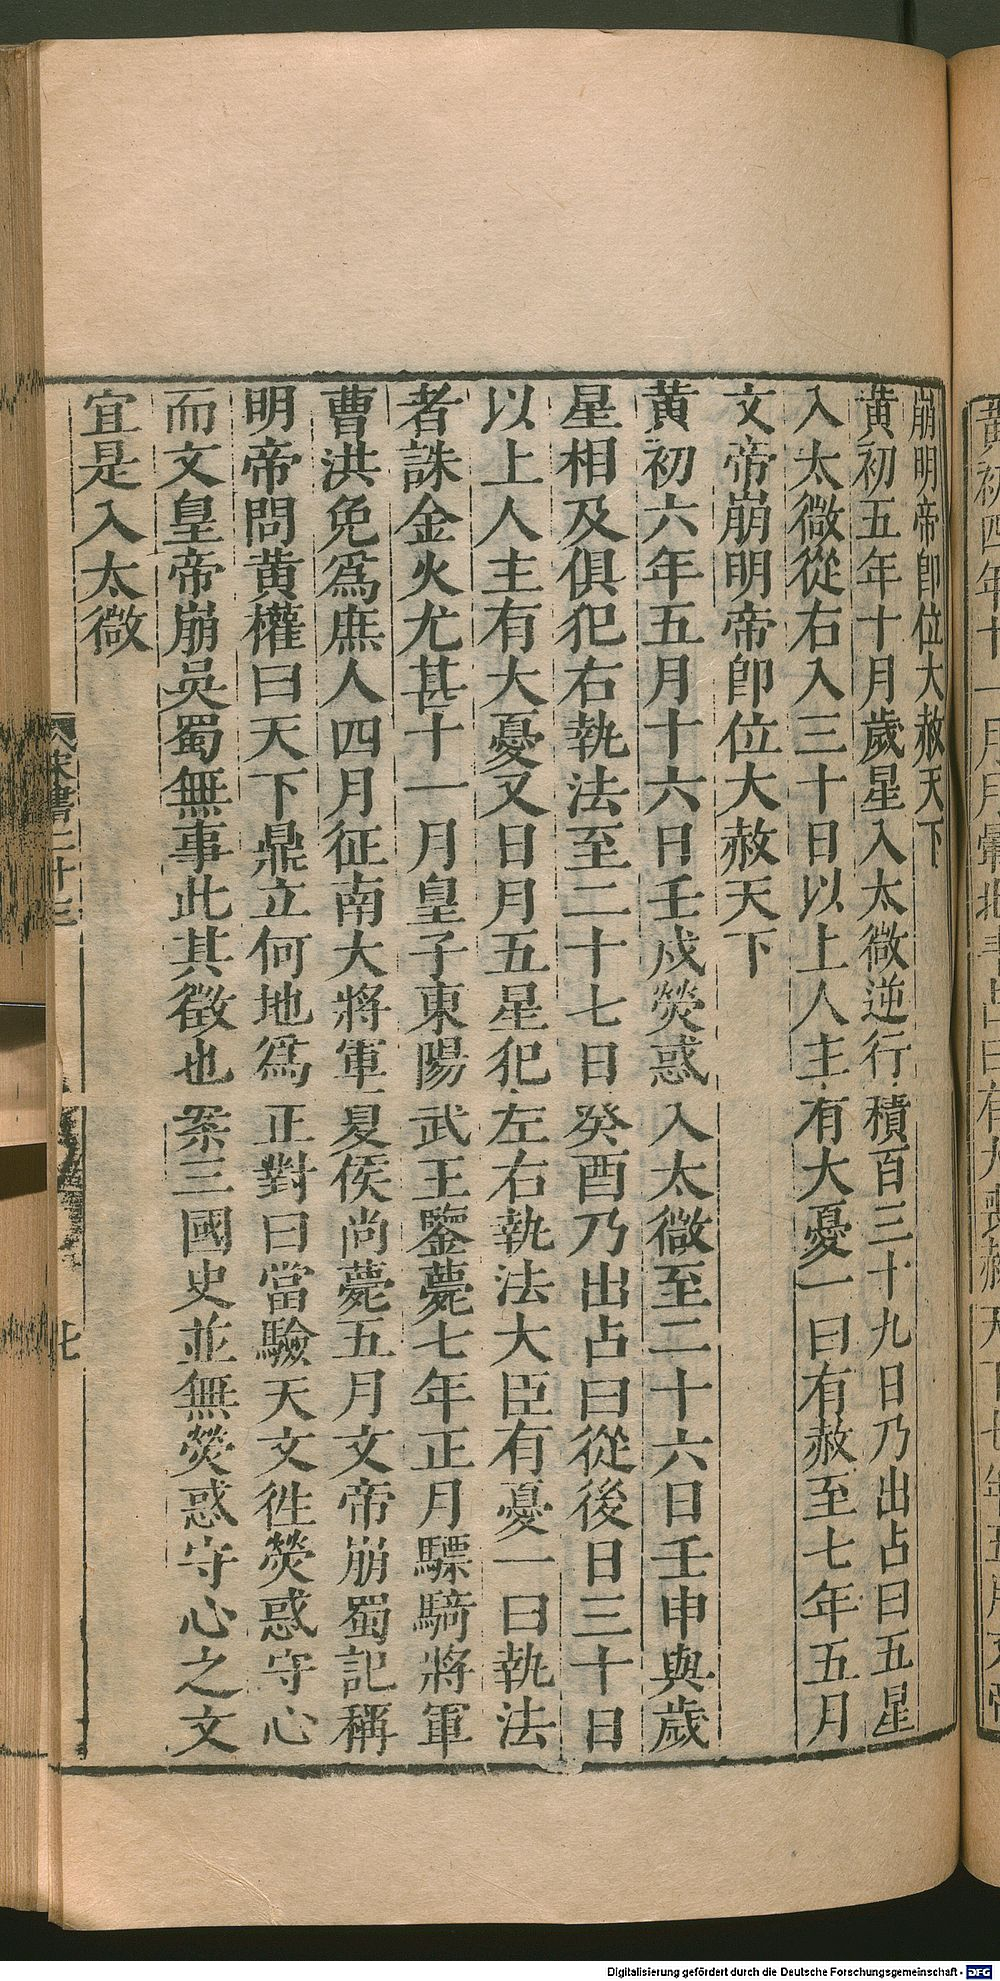 崩明帝卽位大赦天下
黃初五年十月歲星入太微逆行積百三十九日乃出占曰五星
入太微從右入三十日以上人主有大憂一曰有赦至七年五月
文帝崩明帝卽位大赦天下
黃初六年五月十六日壬戌熒惑入太微至二十六日壬申與歲
星相及俱犯右執法至二十七日癸酉乃出占曰從後日三十日
以上人主有大憂又日月五星犯左右執法大臣有憂一曰執法
者誅金火尤甚十一月皇子東陽武王鑒薨七年正月驃騎將軍
曹洪免爲庶人四月征南大將軍夏侯尚薨五月文帝崩蜀記稱
明帝問黃權曰天下鼎立何地爲正對曰當驗天文徃熒惑守心
而文皇帝崩吳蜀無事此其徵也案三國史並無熒惑守心之文
宜是入太微
宋書二十三
七
黃初四年十一月月暈北斗占曰有大喪赦天下七年五月文帝
Digitalisierung gefördert durch die Deutsche Forschungsgemeinschaft - DFG